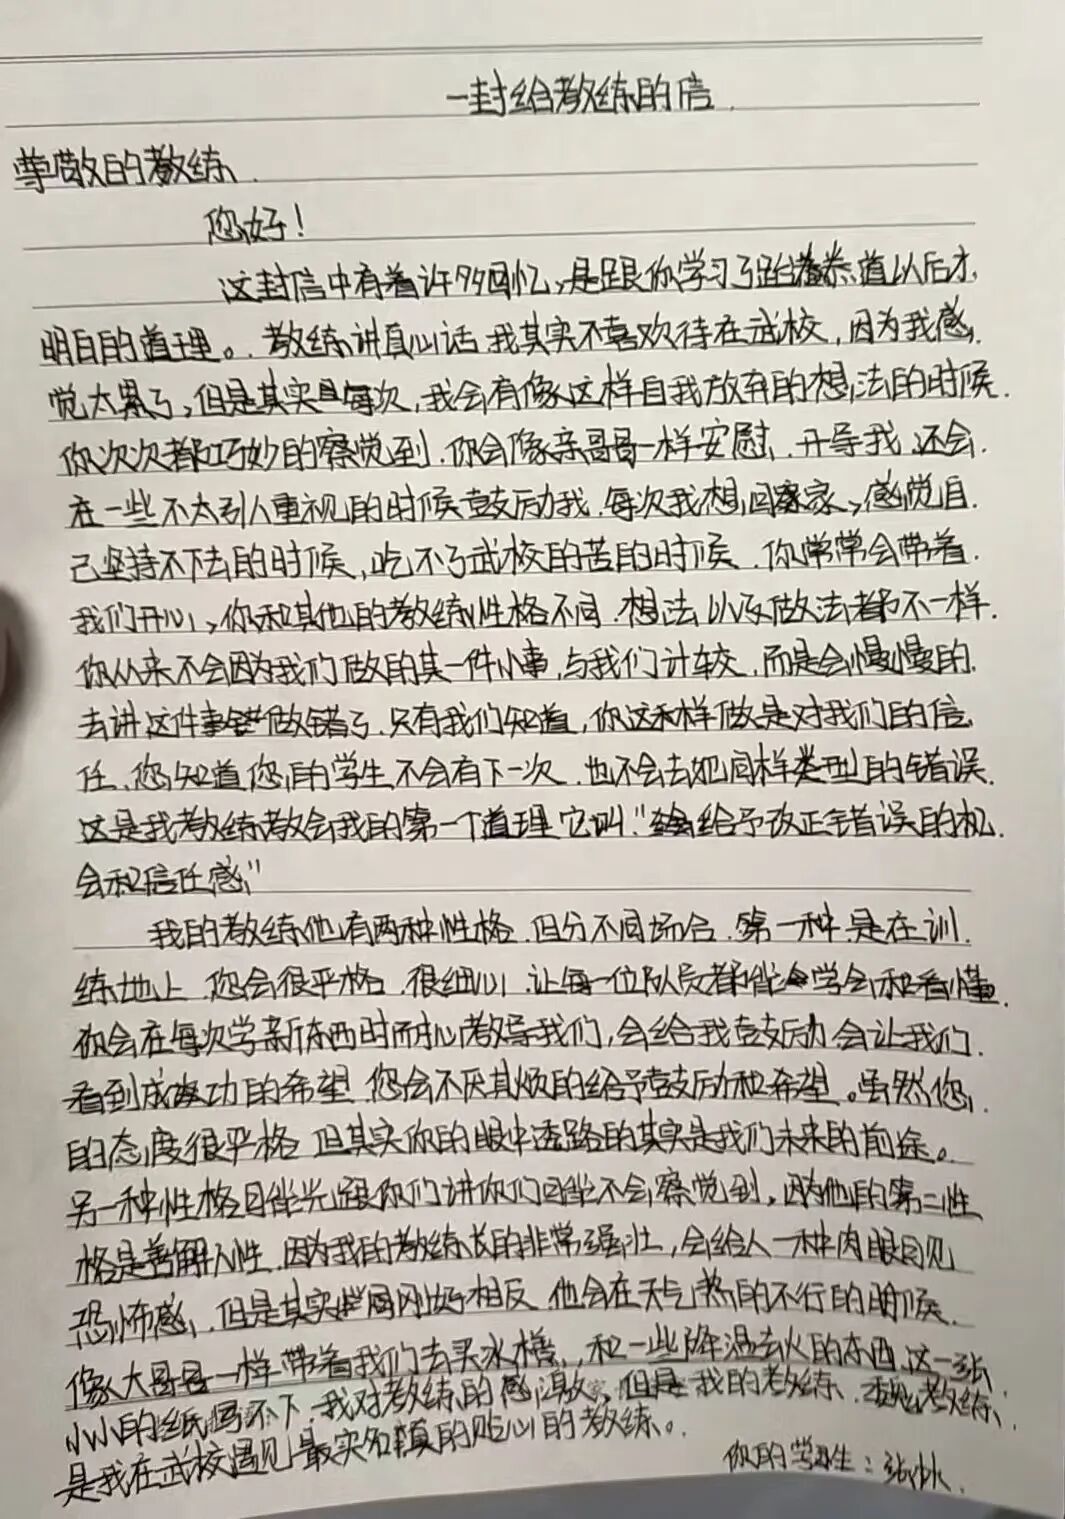 一封给教练的信.
尊敬的教练.
您好!
这封信中有着许多回忆,是跟你学习了跆拳道以后才
明白的道理。.教练讲真心话.我其实不喜欢待在武校,因为我感
觉太累了,但是其实每次,我会有像这样自我放弃的想法的时候.
你次次都巧妙的察觉到.你会像亲哥哥一样安慰.开导我.还会.
在一些不太引人重视的时候鼓励我.每次我想回家,感觉自.
己坚持不下去的时候,吃不了武校的苦的时候.你常常会带着.
我们开心,你和其他的教练性格不同.想法以及做法都不一样.
你从来不会因为我们做的某一件小事,与我们计较.而是会慢慢的.
去讲这件事做错了.只有我们知道,你这种样做是对我们的信.
任.您知道您的学生不会有下一次.也不会去犯同样类型的错误.
这是我教练教会我的第一个道理它叫."给予改正错误的机.
会和信任感"
我的教练他有两种性格.但分不同场合.第一种.是在训.
练地上.您会很严格.很细心.让每一位队员都能学会和看懂.
你会在每次学新东西时耐心教导我们,会给我鼓励会让我们.
看到成功的希望.您会不厌其烦的给予鼓励和希望。虽然您.
的态度很严格.但其实你的眼中透路的其实是我们未来的前途。.
另一种性格.跟你们讲你们不会察觉到,因为他的第二性
格是善解人性.因为我的教练长的非常强壮,会给人一种肉眼可见
恐怖感,但是其实刚好相反.他会在天气热的不行的时候.
像大哥哥一样带着我们去买水,.和一些降温去火的东西.这一张
小小的纸写不下.我对教练的感激.但是我的教练.教练
是我在武校遇见最实的贴心的教练。
你的学生:张